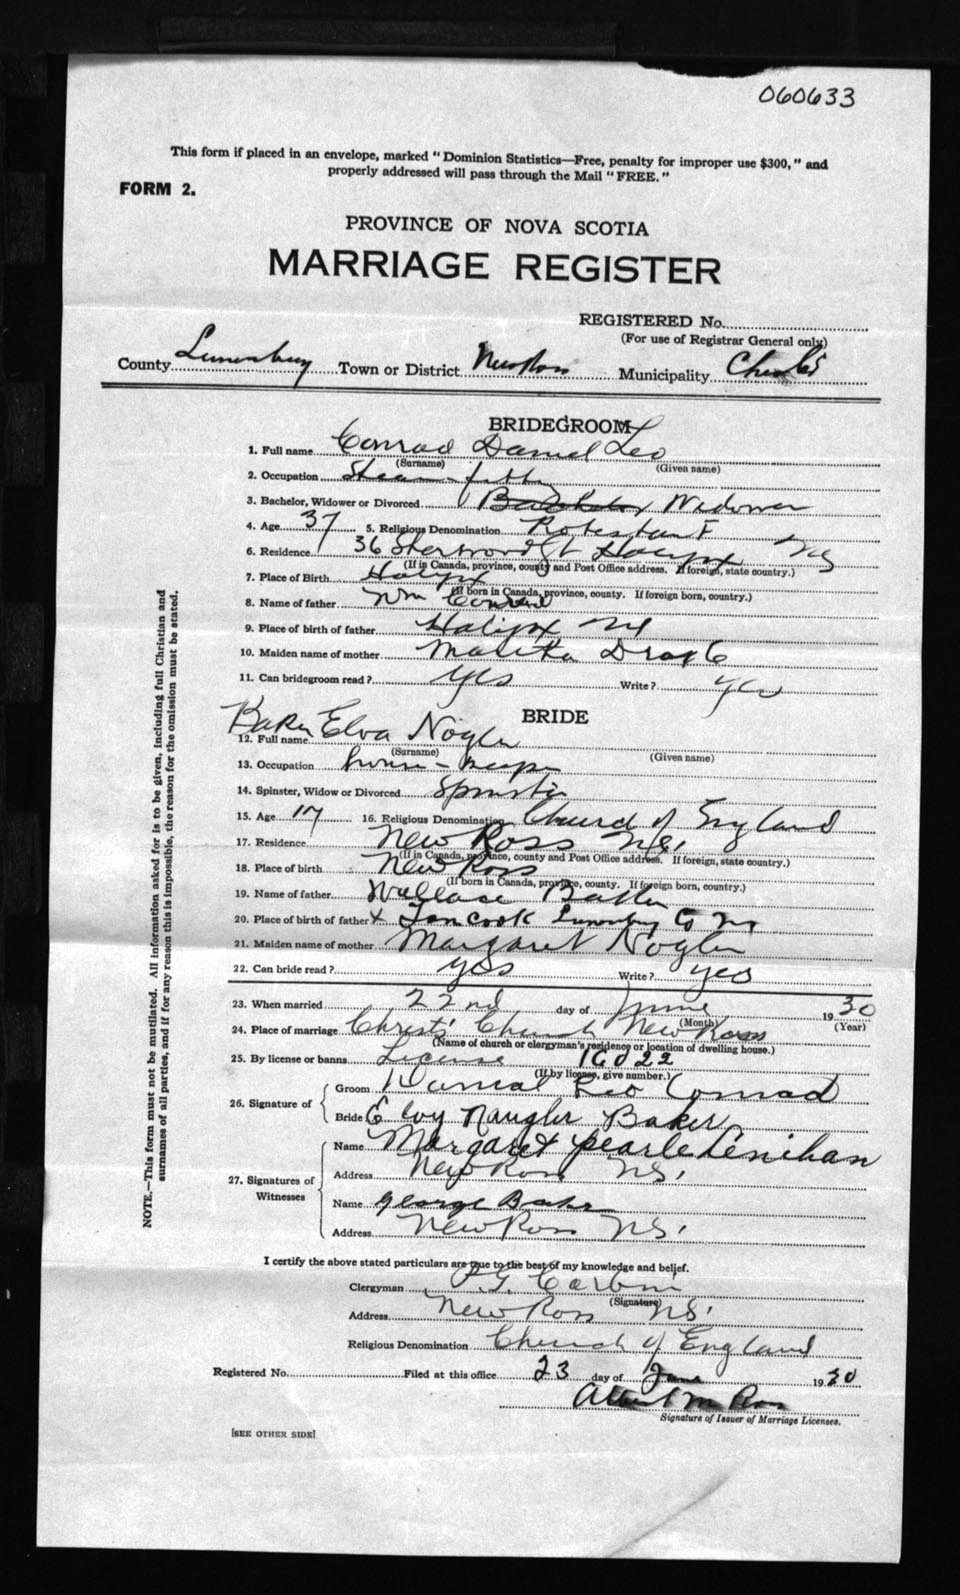 060633
This form if placed in an envelope, marked "Dominion Statistics—Free, penalty for improper use $300," and
properly addressed will pass through the Mail "FREE."
FORM 2.
PROVINCE OF NOVA SCOTIA
MARRIAGE REGISTER
REGISTERED No.
(For use of Registrar General only)
County Lunenburg Town or District New Ross Municipality Chester
BRIDEGROOM
1. Full name Conrad Daniel Leo
(Surname) (Given name)
2. Occupation Steam-fitter
3. Bachelor, Widower or Divorced Bachelor Widower
4. Age 37 5. Religious Denomination Protestant
6. Residence 36 St Halifax NS
(If in Canada, province, county and Post Office address. If foreign, state country.)
7. Place of Birth Halifax
(If born in Canada, province, county. If foreign born, country.)
8. Name of father Wm Conrad
9. Place of birth of father Halifax NS
10. Maiden name of mother
11. Can bridegroom read? yes Write? yes
BRIDE
12. Full name Baker Elva Nogler
(Surname) (Given name)
13. Occupation house-keeper
14. Spinster, Widow or Divorced Spinster
15. Age 17 16. Religious Denomination Church of England
17. Residence New Ross NS.
(If in Canada, province, county and Post Office address. If foreign, state country.)
18. Place of birth New Ross
(If born in Canada, province, county. If foreign born, country.)
19. Name of father Wallace Baker
20. Place of birth of father x Tancook Lunenburg Co NS
21. Maiden name of mother Margaret Nogler
22. Can bride read? yes Write? yes
23. When married 22nd day of June 1930
(Month) (Year)
24. Place of marriage Christ' Church New Ross
(Name of church or clergyman's residence or location of dwelling house.)
25. By license or banns License 16022
(If by license, give number.)
26. Signature of Groom Daniel Leo Conrad
Bride Elvy Naugler Baker
27. Signatures of Witnesses Name Margaret Pearle Lenihan
Address New Ross NS.
Name George Baker
Address New Ross NS.
I certify the above stated particulars are true to the best of my knowledge and belief.
Clergyman
(Signature)
Address New Ross NS.
Religious Denomination Church of England
Registered No. Filed at this office 23 day of June 1930
Albert M Ross
Signature of Issuer of Marriage Licenses.
[SEE OTHER SIDE]
NOTE.—This form must not be mutilated. All information asked for is to be given, including full Christian and
surnames of all parties, and if for any reason this is impossible, the reason for the omission must be stated.